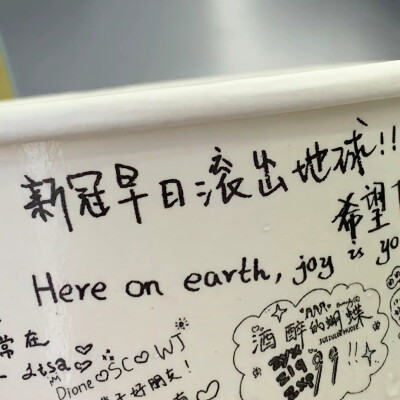 新冠早日滚出地球!!
希望
Here on earth, joy is yo
常在
Dione♡SC♡WJ
好朋友!
酒醉的蝴蝶
99!!